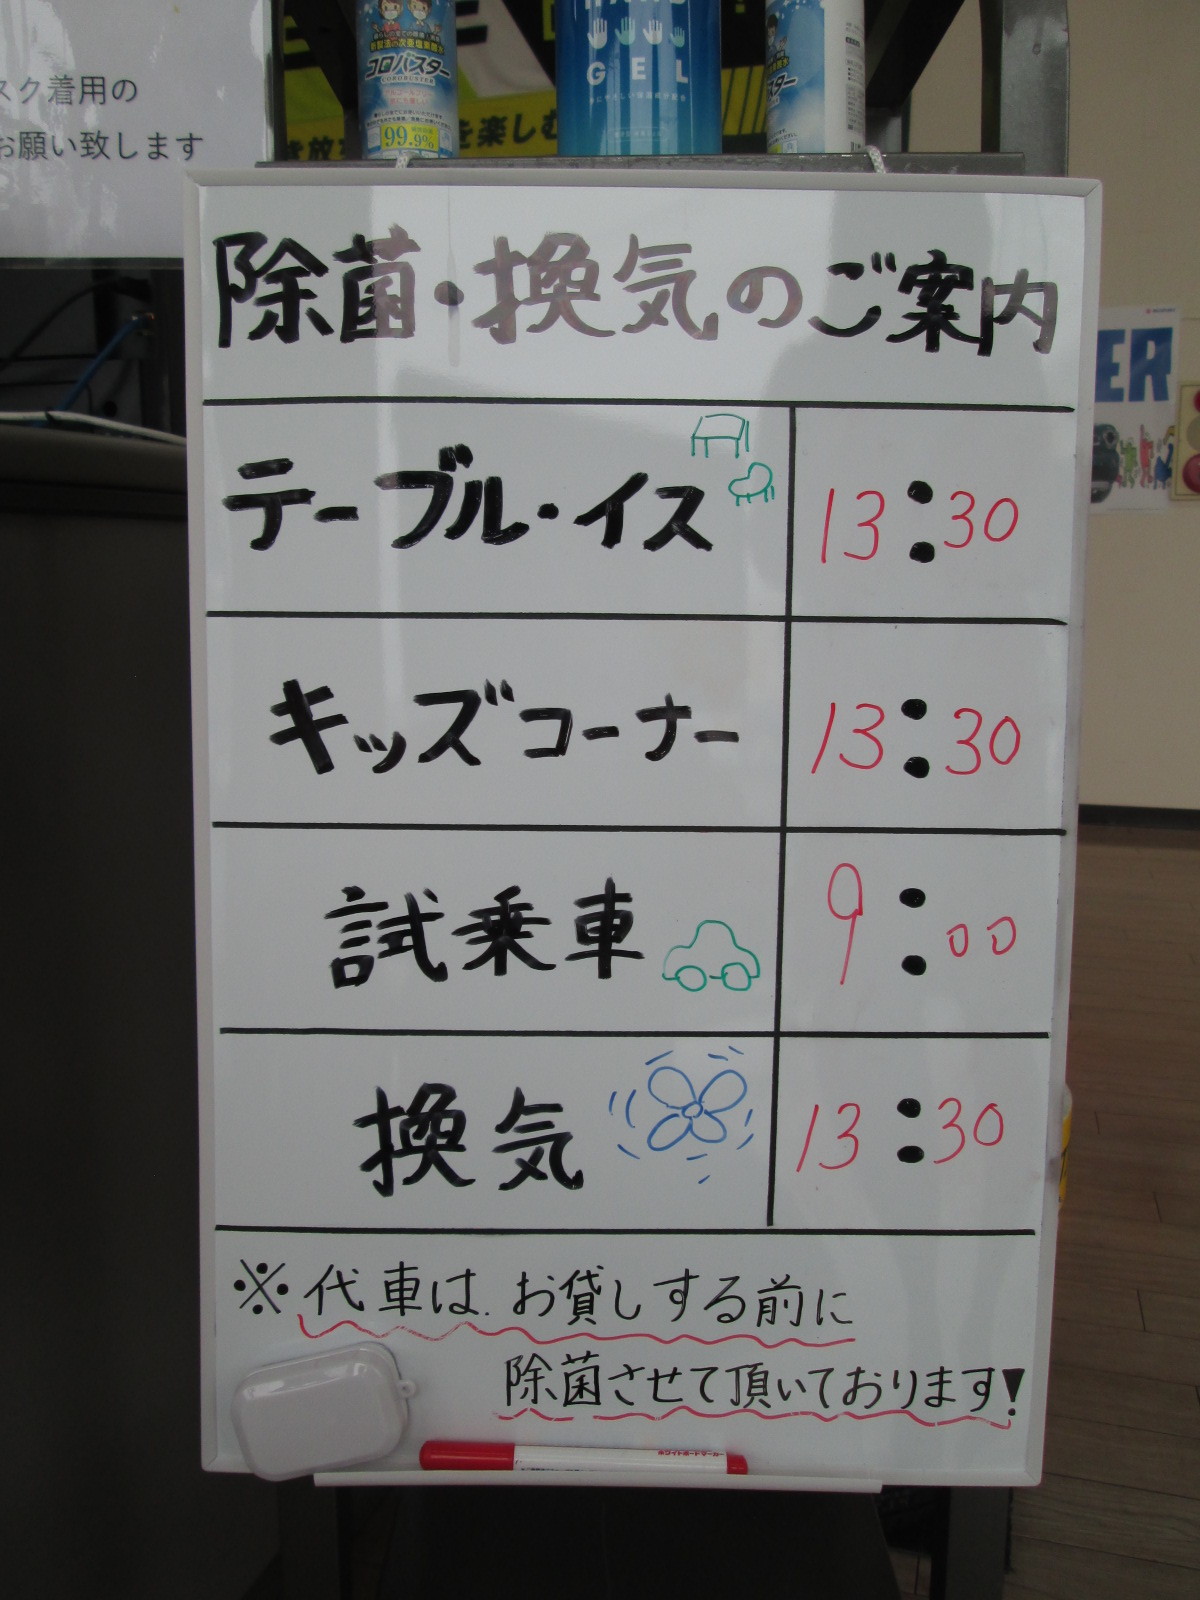 スク着用の
お願い致します
コロバスター
99.9%
HAND
GEL
を楽しむ
除菌・換気のご案内
テーブル・イス 13:30
キッズコーナー 13:30
試乗車 9:00
換気 13:30
※代車は、お貸しする前に
除菌させて頂いております!
ホワイトボードマーカー
ER